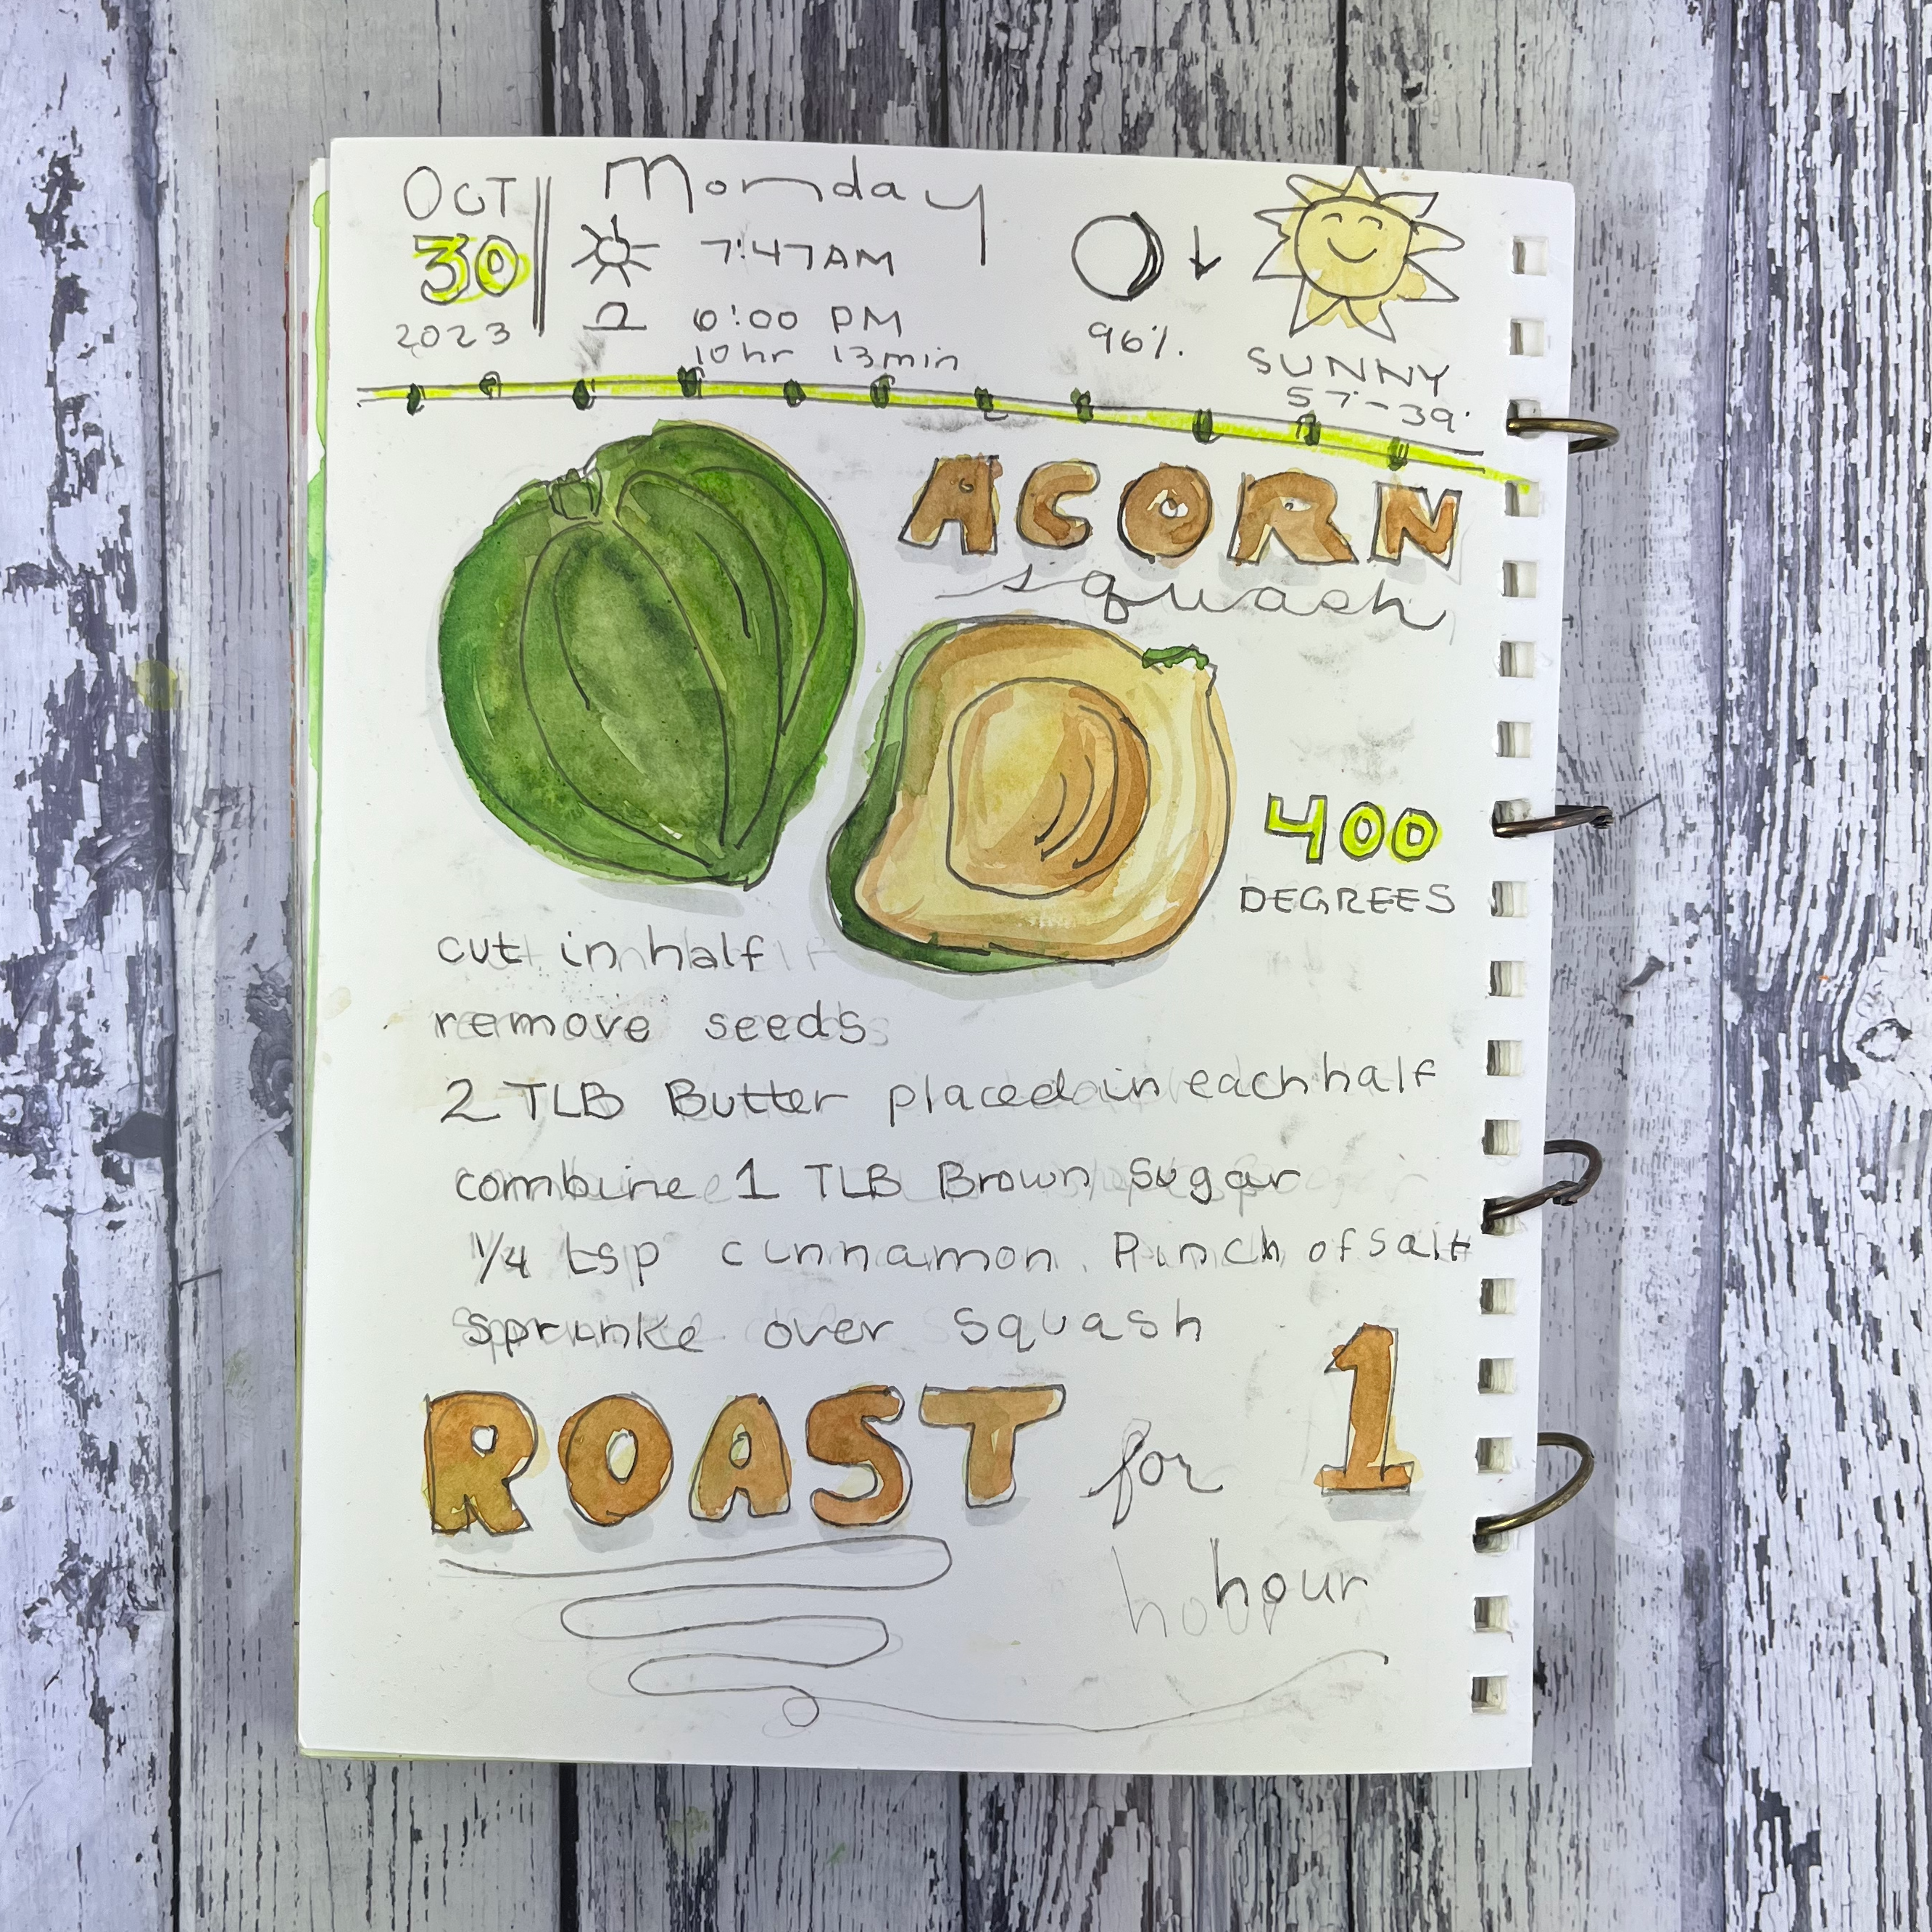 OCT
30
2023
Monday
7:47AM
6:00 PM
10hr 13min
96%.
SUNNY
57°-39°
ACORN
squash
400
DEGREES
cut in half
remove seeds
2 TLB Butter placed in each half
combine 1 TLB Brown Sugar
1/4 tsp cinnamon. Pinch of salt
sprinke over squash
ROAST for 1
hour